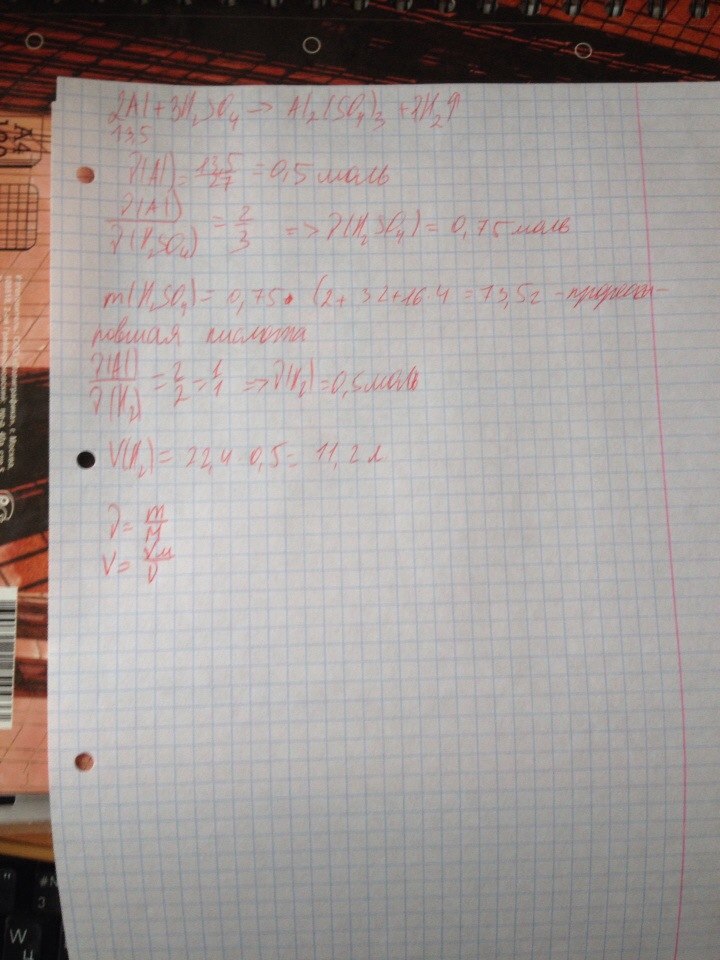 2Al + 3H2SO4 → Al2(SO4)3 + 2H2↑
13,5
ν(Al) = 13,5/27 = 0,5 моль
ν(Al)/ν(H2SO4) = 2/3 => ν(H2SO4) = 0,75 моль
m(H2SO4) = 0,75 · (2+32+16·4 = 73,5г - прореаги-
ровавшая кислота
ν(Al)/ν(H2) = 2/2 = 1/1 => ν(H2) = 0,5 моль
V(H2) = 22,4 · 0,5 = 11,2 л
ν = m/M
V = Vм/ν
A4
W
3